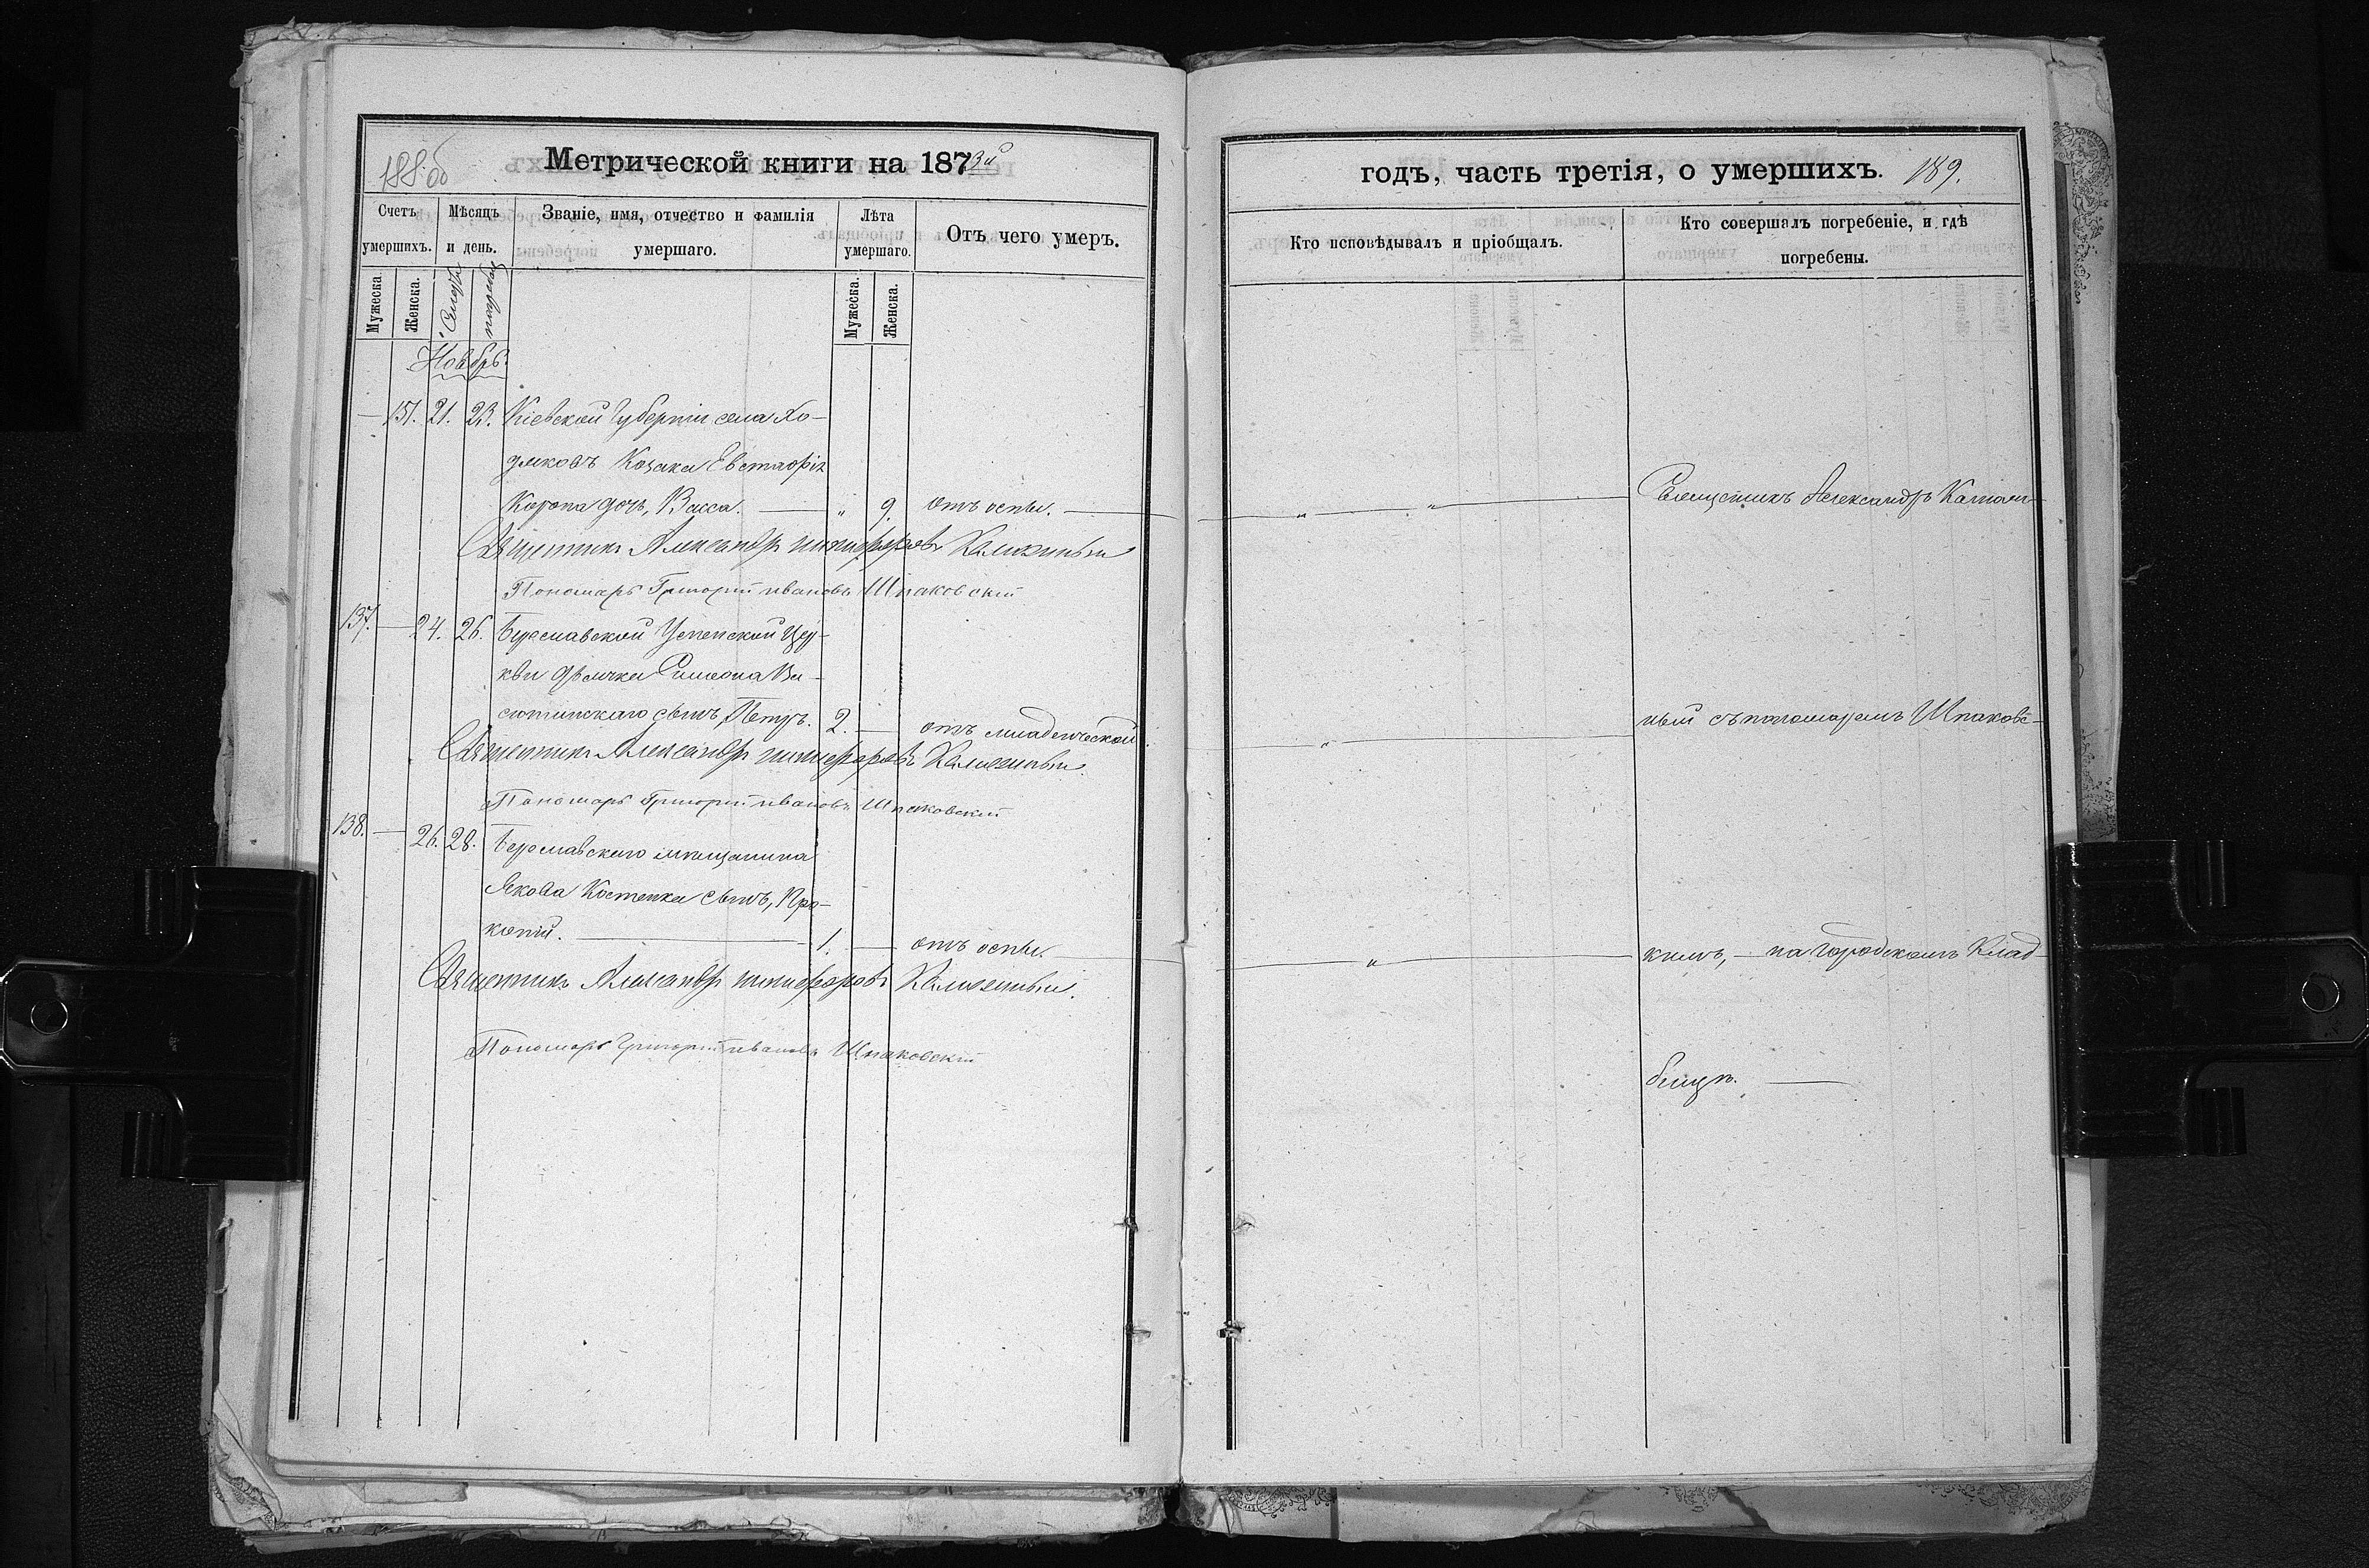 188 об
Метрической книги на 1873й
годъ, часть третія, о умершихъ. 189.
Счетъ умершихъ.
Мѣсяцъ и день.
Званіе, имя, отчество и фамилія умершаго.
Лѣта умершаго.
Отъ чего умеръ.
Кто исповѣдывалъ и пріобщалъ.
Кто совершалъ погребеніе, и гдѣ погребены.
Мужеска
Женска.
Смерти
погребен.
Мужеска.
Женска.
Ноябрь.
— 151. 21. 23. Кіевской Губерніи села Хо-
дяковъ Козака Евстафія
Коропа дочь, Васса. — „ 9. отъ оспы. — „ „ — Священникъ Александръ
Священникъ Александръ Никифоровъ
Пономарь Григорій Ивановъ Шпаковскій
137. — 24. 26. Береславской Успенской Цер-
кви дьячка Симеона Ви-
сютинскаго сынъ, Петръ. 2. — отъ младенческой. — „ — ный съ пономаремъ Шпаковс-
Священникъ Александръ Никифоровъ
Пономарь Григорій Ивановъ Шпаковскій
138. — 26. 28. Береславскаго мѣщанина
Якова Костенка сынъ, Про-
копій. — 1. — отъ оспы. — „ — кимъ, — на городскомъ Клад-
Священникъ Александръ Никифоровъ
Пономарь Григорій Ивановъ Шпаковскій
бищѣ. —